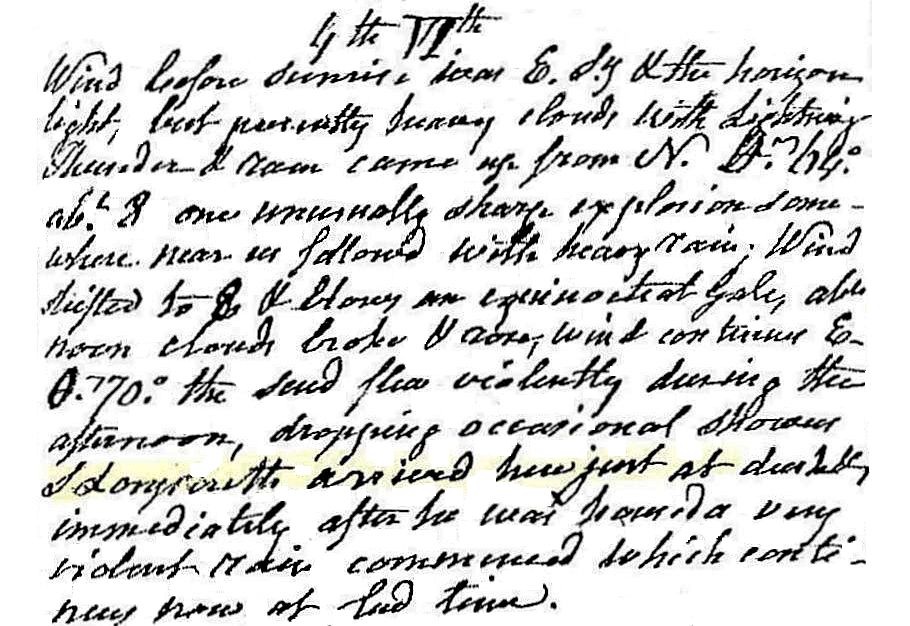 4th VIth
Wind before sunrise was E. S.y & the horizon
light, but presently heavy clouds with Lightning
Thunder & rain came up from N. 64°
abt 8 one unusually sharp explosion some-
where near us followed with heavy rain; Wind
shifted to & blows an equinoctial Gale, abt
noon clouds broke & rose, wind continues E-
70° the scud flew violently during the
afternoon, dropping occasional showers
J Longstreth arrived here just at dusk &
immediately after he was housed a very
violent rain commenced which conti-
nues now at bed time.